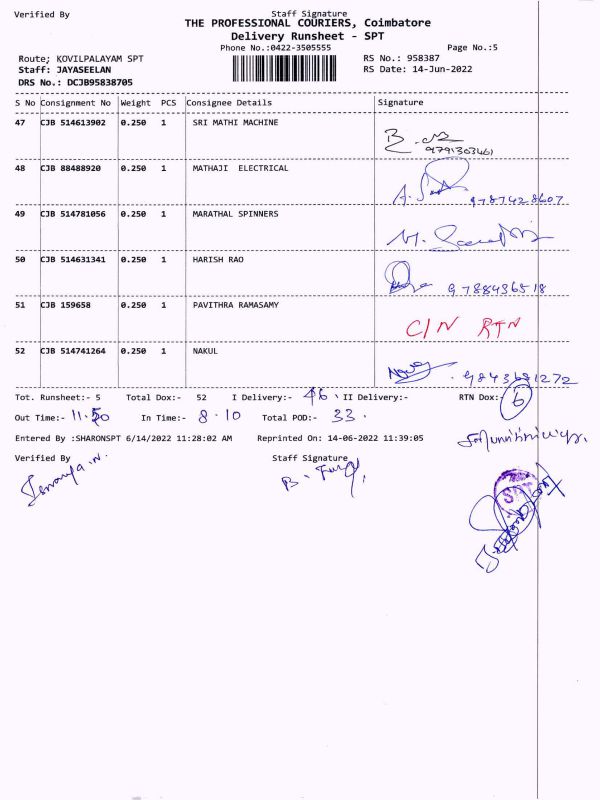 Verified By Staff Signature
THE PROFESSIONAL COURIERS, Coimbatore
Delivery Runsheet - SPT
Phone No.:0422-3505555 Page No.:5
Route; KOVILPALAYAM SPT RS No.: 958387
Staff: JAYASEELAN RS Date: 14-Jun-2022
DRS No.: DCJB95838705
S No Consignment No Weight PCS Consignee Details Signature
47 CJB 514613902 0.250 1 SRI MATHI MACHINE
9791303461
48 CJB 88488920 0.250 1 MATHAJI ELECTRICAL
9787428607
49 CJB 514781056 0.250 1 MARATHAL SPINNERS
50 CJB 514631341 0.250 1 HARISH RAO
9788436518
51 CJB 159658 0.250 1 PAVITHRA RAMASAMY
C/N RTN
52 CJB 514741264 0.250 1 NAKUL
9843681272
Tot. Runsheet:- 5 Total Dox:- 52 I Delivery:- 46 II Delivery:- RTN Dox:- 6
Out Time:- 11.50 In Time:- 8.10 Total POD:- 33.
Entered By :SHARONSPT 6/14/2022 11:28:02 AM Reprinted On: 14-06-2022 11:39:05
Verified By Staff Signature
SPT